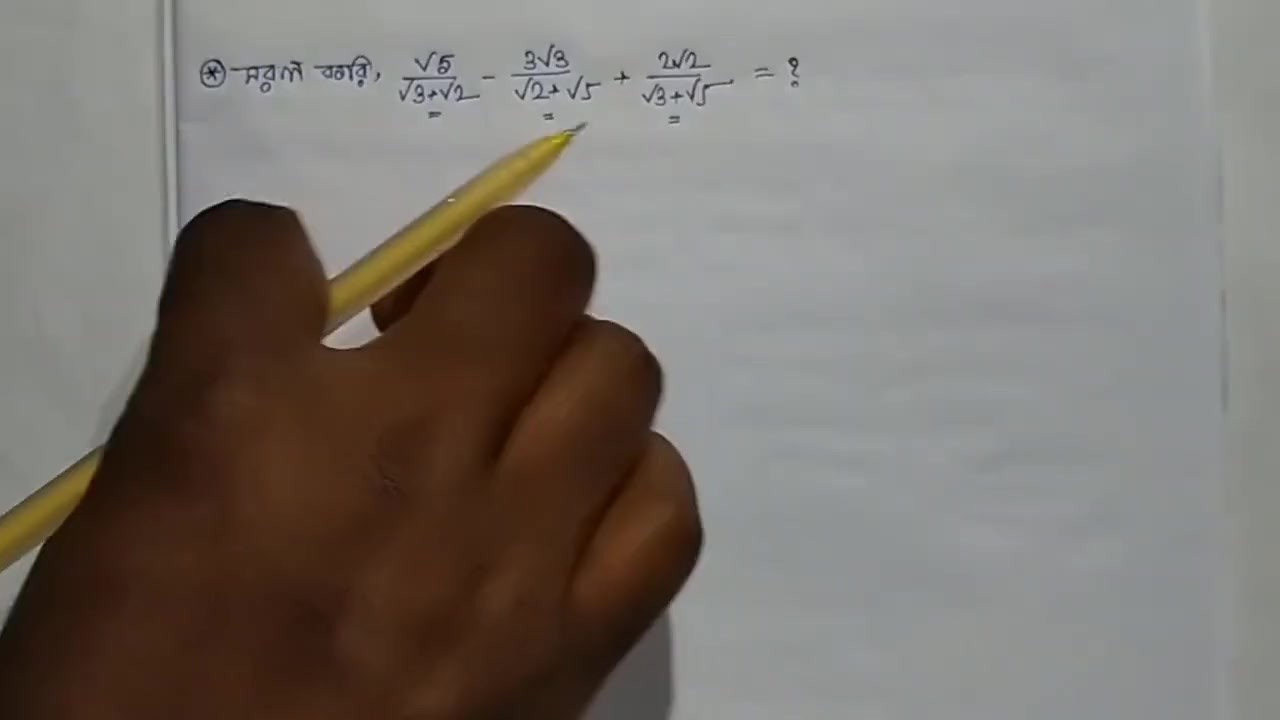 ⊛ সরল করি, √5/(√3+√2) - 3√3/(√2+√5) + 2√2/(√3+√5) = ?